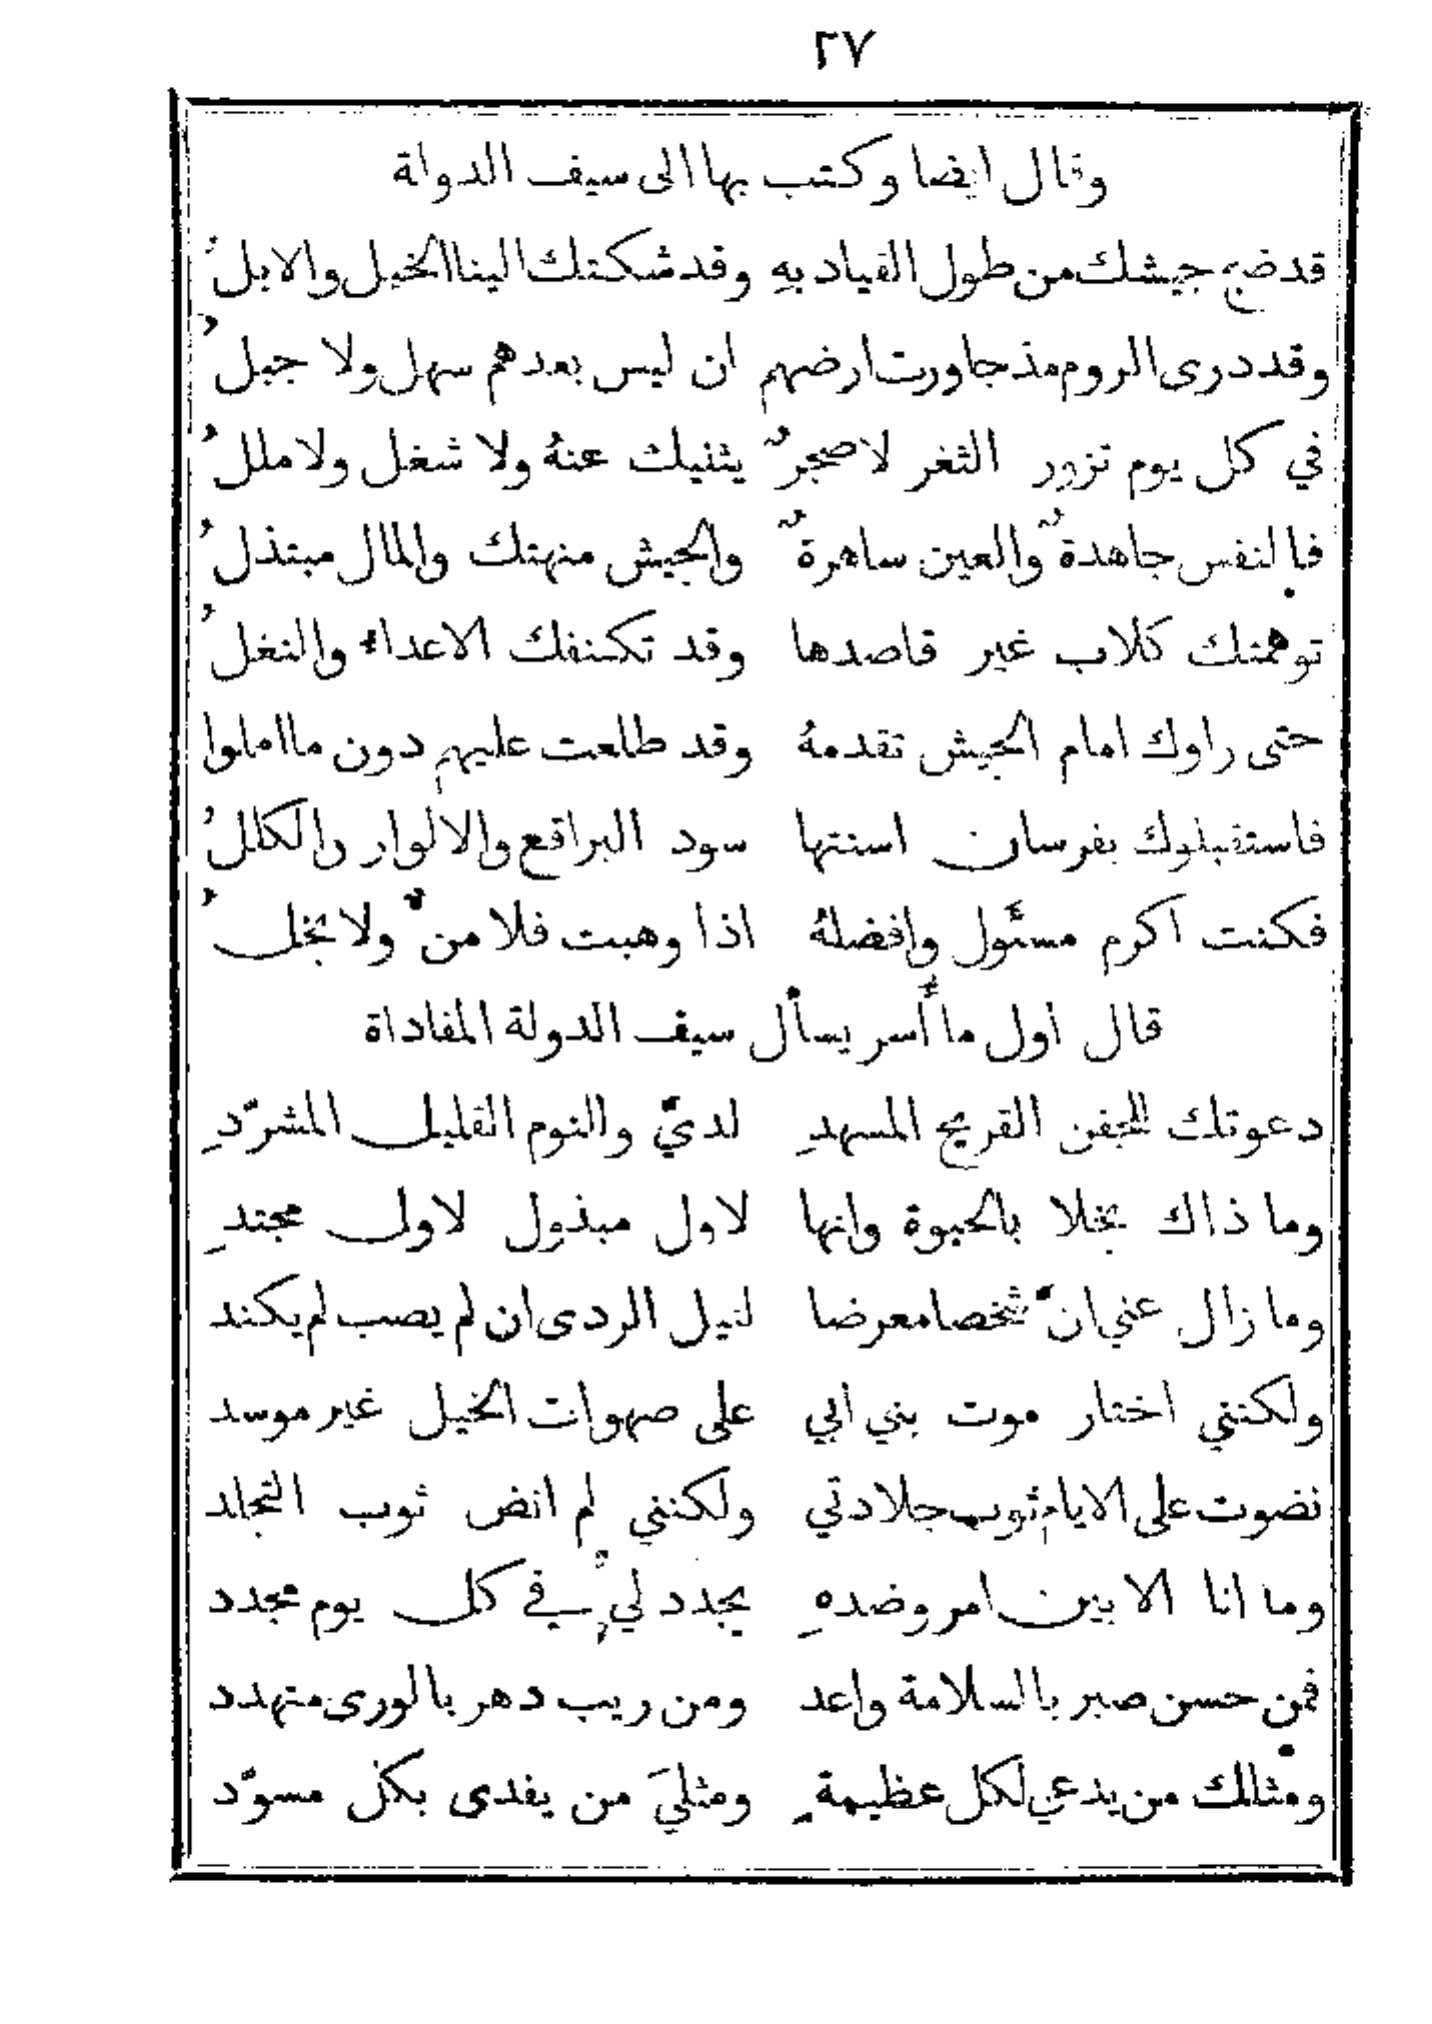 ٢٧
وقال ايضا وكتب بها الى سيف الدولة
قد ضج جيشك من طول القياد بهِ وقد شكتك الينا الخيل والابلُ
وقد درى الروم مذ جاورت ارضهم ان ليس بعدهم سهل ولا جبلُ
في كل يوم تزور الثغر لا ضجرٌ يثنيك عنهُ ولا شغل ولا مللُ
فالنفس جاهدةٌ والعين ساهرةٌ والجيش منهتك والمال مبتذلُ
توهمتك كلاب غير قاصدها وقد تكنفك الاعداء والنغلُ
حتى راوك امام الجيش تقدمهُ وقد طلعت عليهم دون ما املوا
فاستقبلوك بفرسان اسنتها سود البراقع والالوار والكللُ
فكنت اكرم مسئول وافضلهُ اذا وهبت فلا منٌ ولا بخلُ
قال اول ما أُسر يسأل سيف الدولة المفاداة
دعوتك للجفن القريح المسهدِ لديّ والنوم القليل المشرّدِ
وما ذاك بخلا بالحيوة وانها لاول مبذول لاول مجتدِ
وما زال عني ان شخصا معرضا لنيل الردى ان لم يصب لم يكند
ولكنني اختار موت بني ابي على صهوات الخيل غير موسد
نضوت على الايام ثوب جلادتي ولكنني لم انض ثوب التجلد
وما انا الا بين امر وضدهِ يجدد لي في كل يوم مجدد
فمن حسن صبر بالسلامة واعد ومن ريب دهر بالورى متهدد
ومثلك من يدعى لكل عظيمةٍ ومثليَ من يفدى بكل مسوّد